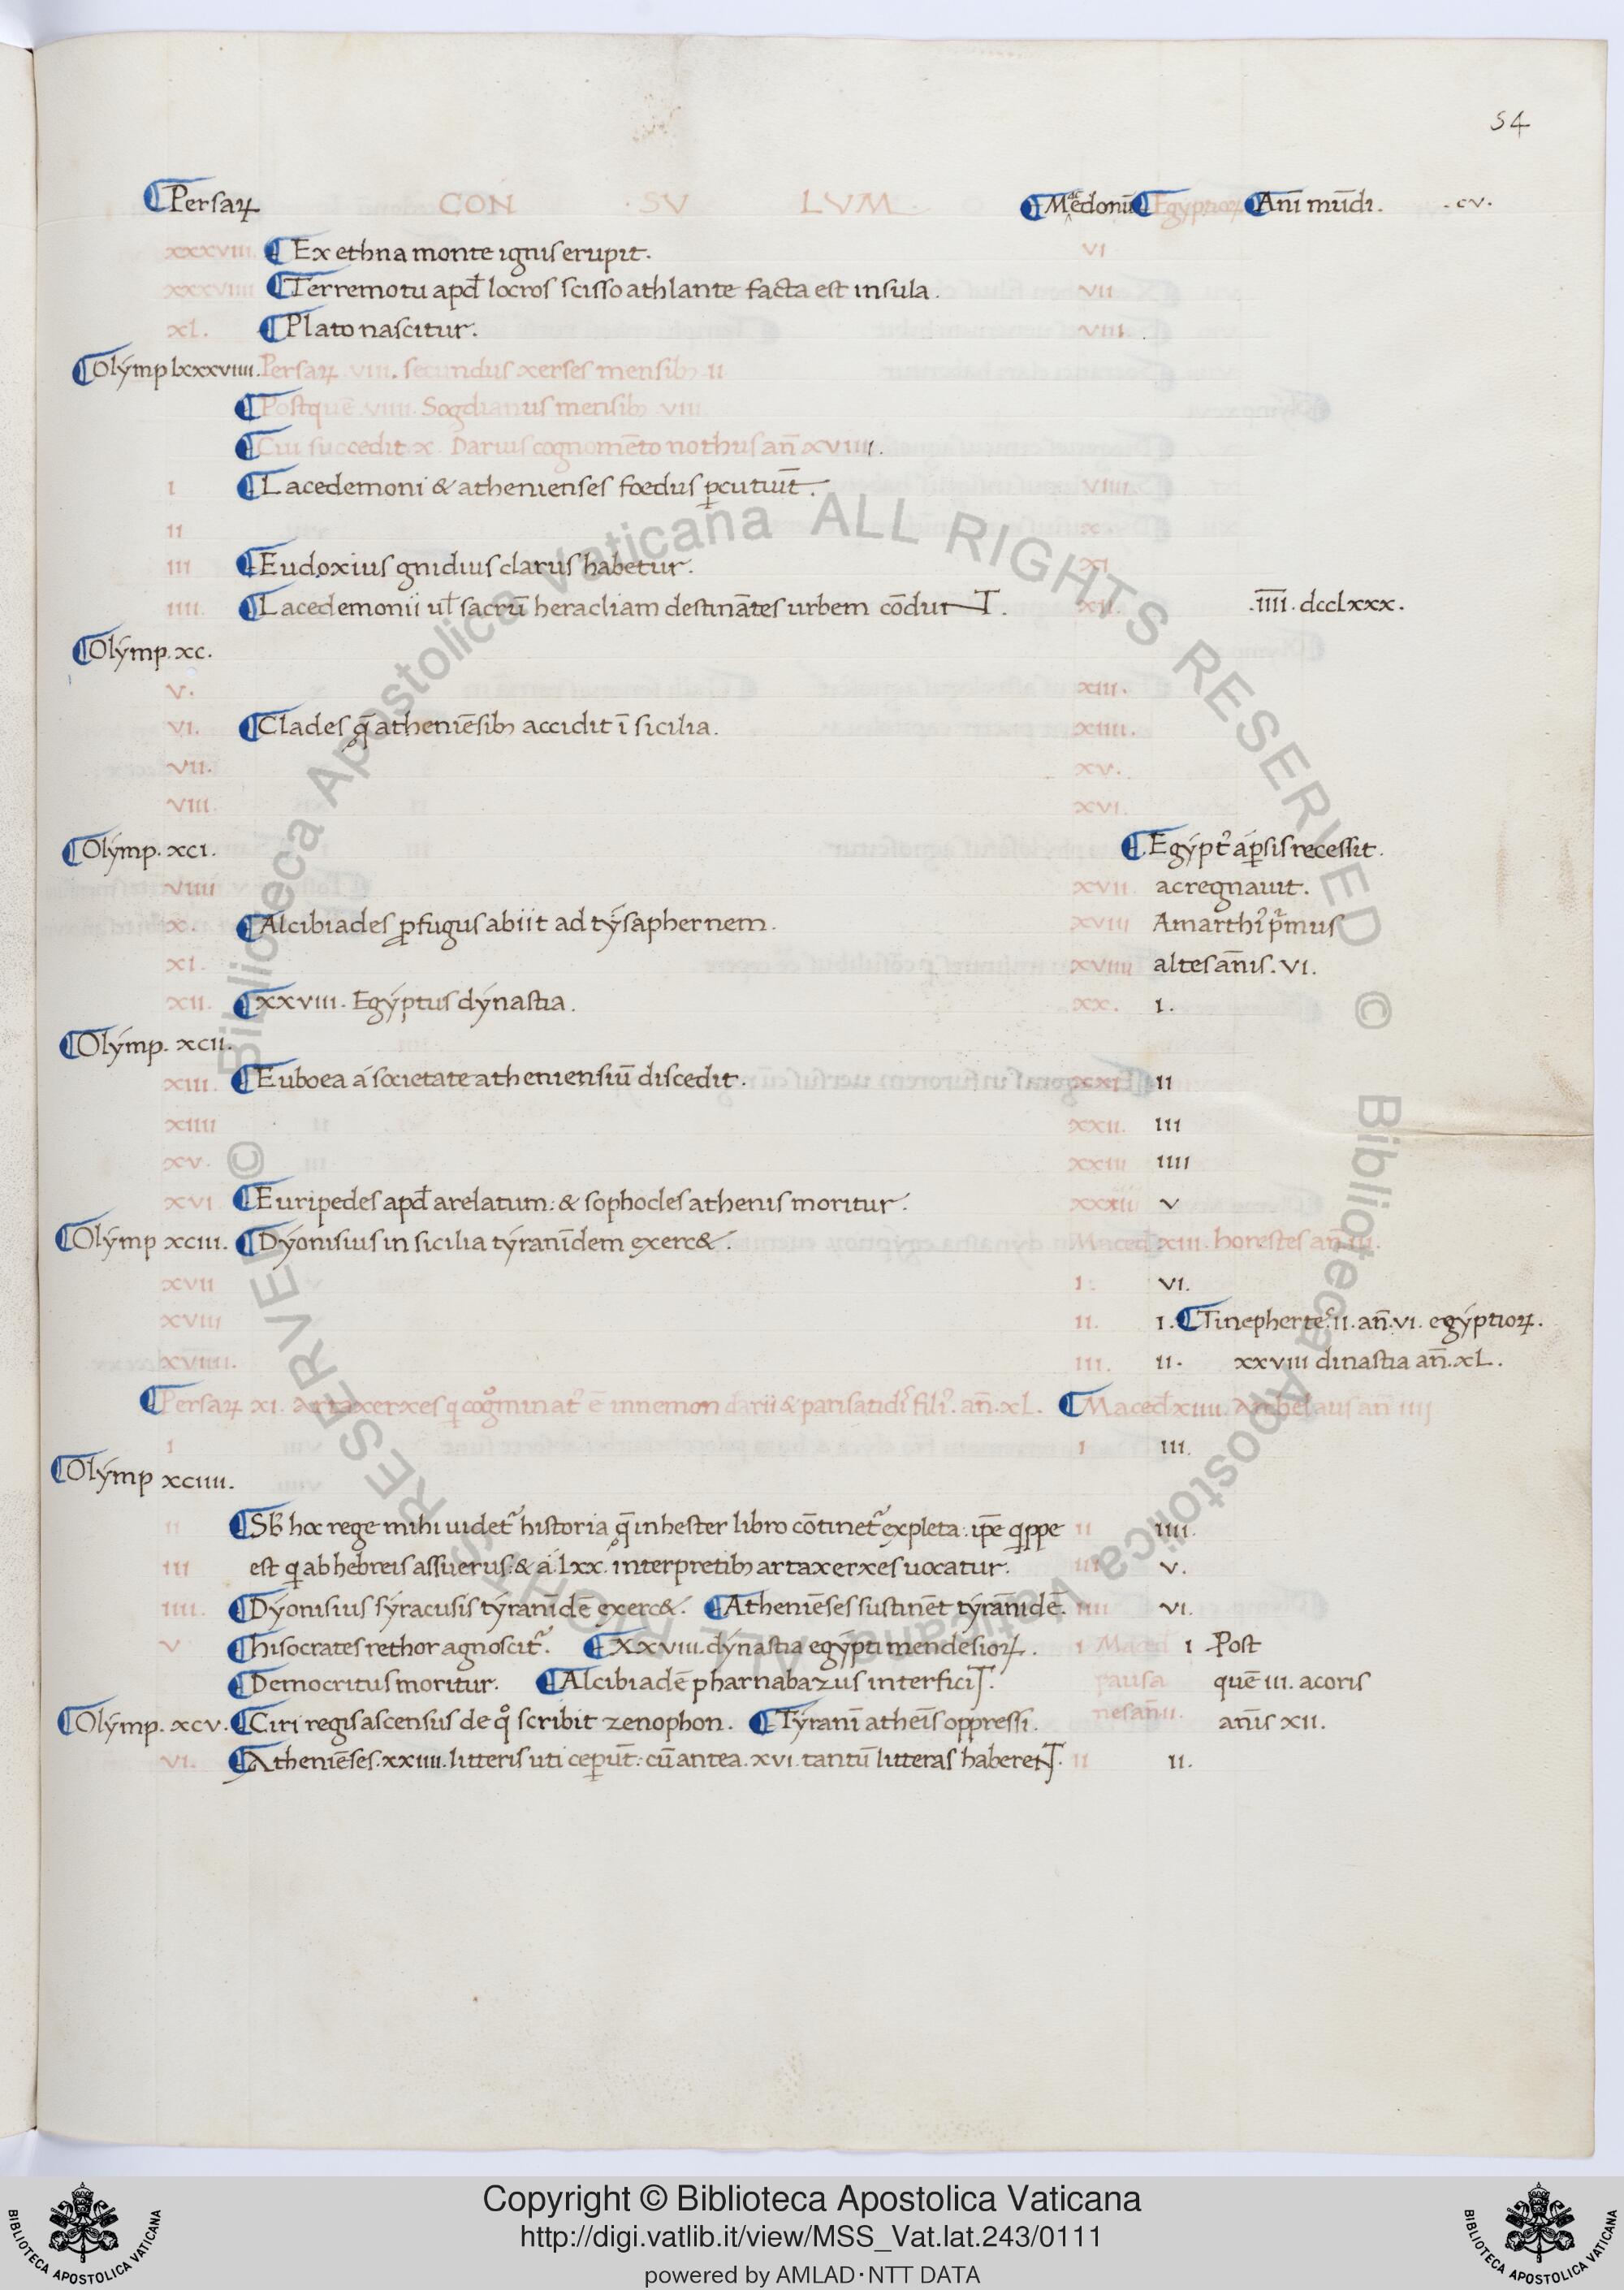 54
¶Persaꝝ CON · SV LVM · ¶Macedonũ ¶Egyptioꝝ ¶Ani mũdi . . cv .
xxxviii ¶Ex ethna monte ignis erupit . vi
xxxviiii ¶Terremotu apđ locros scisso athlante facta est insula . vii
xl . ¶Plato nascitur . viii
¶Olýmp lxxxviiii . Persaꝝ viii . secundus xerses mensib; ii
¶Postquẽ viiii . Sogdianus mensib; viii
¶Cui succedit x . Darius cognomẽto nothus añ xviiii .
i ¶Lacedemoni & athenienses foedus ꝑcutiũt . viiii
ii x
iii ¶Eudoxius gnidius clarus habetur . xi
iiii . ¶Lacedemonii ul̃ sacrũ heracliam destinãtes urbem cõdut T . xii . . iiii . dcclxxx .
¶Olýmp . xc .
v . xiii .
vi . ¶Clades q̃ atheniẽsib; accidit ĩ sicilia . xiiii .
vii . xv .
viii xvi
¶Olýmp . xci . ¶Egýptꝰ aꝑsis recessit .
viiii xvii ac regnauit .
x . ¶Alcibiades ꝓfugus abiit ad týsaphernem . xviii Amarthꝰ pͥmus
xi . xviiii altes añis . vi .
xii . ¶xxviii . Egýptus dýnastia . xx . i .
¶Olýmp . xcii .
xiii . ¶Euboea a societate atheniensiũ discedit . xxi ii
xiiii xxii . iii
xv . xxiii iiii
xvi ¶Euripedes apđ arelatum : & sophocles athenis moritur . xxxiii v
¶Olýmp xciii . ¶Dýonisius in sicilia týrañidem exerc& . Maced xiii . horestes añ iii .
xvii i . vi .
xviii ii . i . ¶Tinepherteˢ . ii . añ . vi . egýptioꝝ .
xviiii . iii . ii . xxviii dinastia añ . xL .
¶Persaꝝ xi . Artaxerxes q cog̊minatꝰ ẽ innemon darii & parisatidꝰ filiꝰ . añ . xL . ¶Maceđ xiiii . Archelaus añ iiij
i i iii .
¶Olýmp xciiii .
ii ¶Sb̃ hoc rege mihi uidetᷣ historia q̃ in hester libro cõtinetᷣ expleta : ip̃e qppe ii iiii .
iii est q ab hebreis assuerus : & a . lxx . interpretib; artaxerxes uocatur . iii v .
iiii . ¶Dýonisius sýracusis týrañidẽ exerc& . ¶Atheniẽses sustinẽt týrañidẽ . iiii vi .
v ¶hisocrates rethor agnoscitᷣ . ¶XXviii . dýnastia egýpti mendesioꝝ . i Maceđ i Post
¶Democritus moritur . ¶Alcibiadẽ pharnabazus interficiT . pausa quẽ iii . acoris
¶Olýmp . xcv . ¶Ciri regis ascensus de q̊ scribit zenophon . ¶Týrani atheĩs oppressi . nes añ ii . añis xii .
vi . ¶Atheniẽses . xxiiii . litteris uti ceꝑũt : cũ antea . xvi . tantũ litteras habereNT . ii ii .
Copyright © Biblioteca Apostolica Vaticana
http://digi.vatlib.it/view/MSS_Vat.lat.243/0111
powered by AMLAD·NTT DATA
BIBLIOTECA APOSTOLICA VATICANA
BIBLIOTECA APOSTOLICA VATICANA
© Biblioteca Apostolica Vaticana ALL RIGHTS RESERVED © Biblioteca Apostolica Vaticana ALL RIGHTS RESERVED